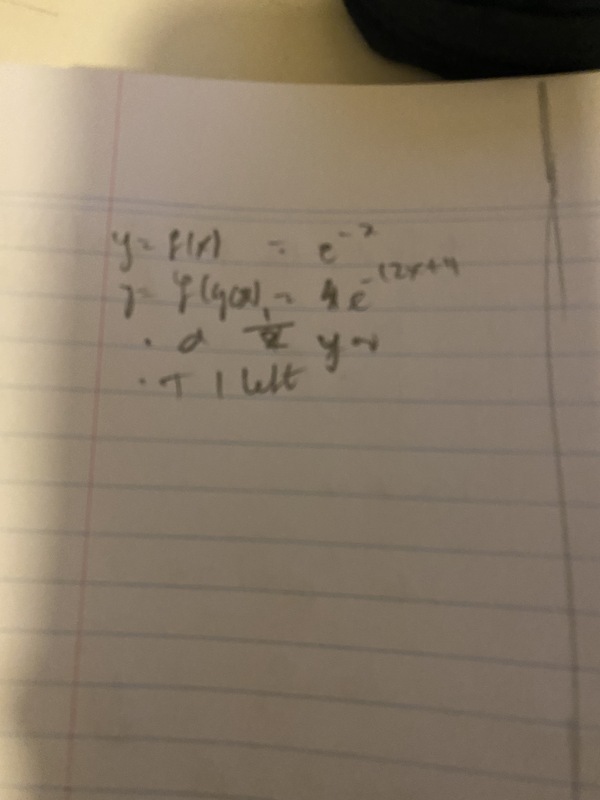 y = f(x) = e^-x
y = f(g(x)) = e^-(2x+4
· d 1/2 y~
· T 1 left